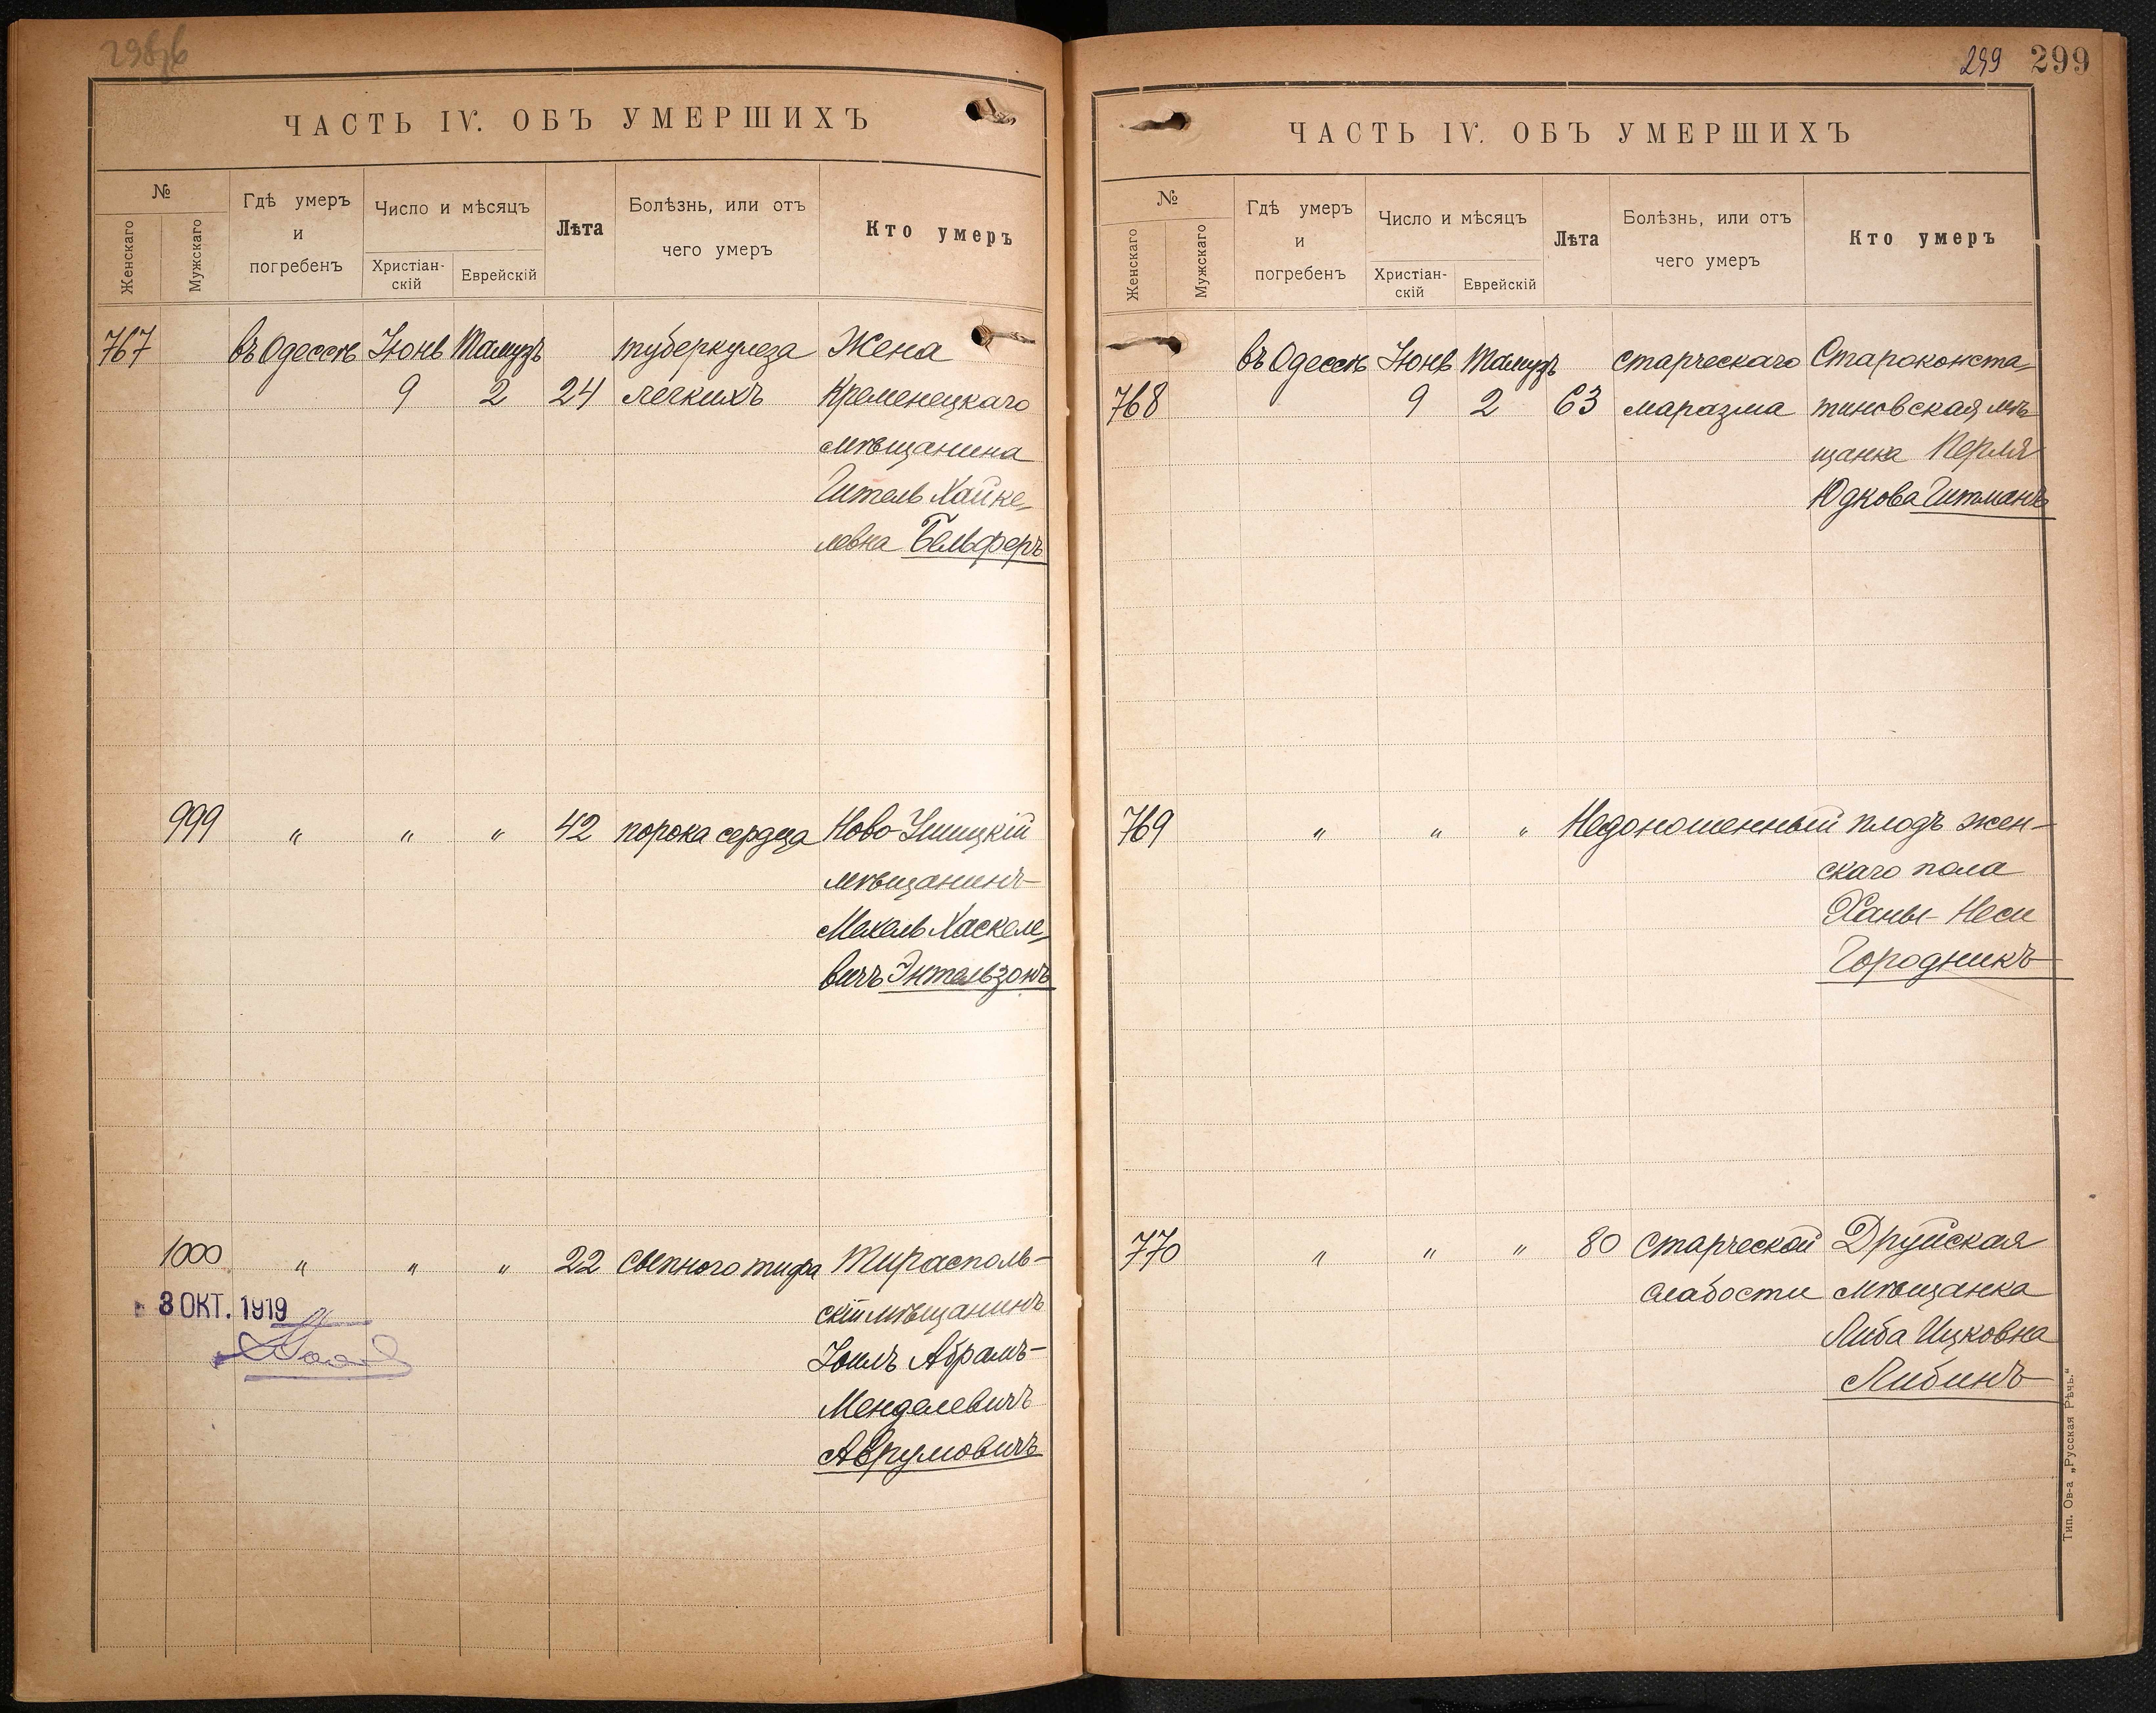 298об
ЧАСТЬ IV. ОБЪ УМЕРШИХЪ
№
Женскаго
Мужскаго
Гдѣ умеръ
и
погребенъ
Число и мѣсяцъ
Христіан-
скій
Еврейскій
Лѣта
Болѣзнь, или отъ
чего умеръ
Кто умеръ
767 въ Одессѣ Іюнь Тамузъ туберкулеза Жена
9 2 24 легкихъ Кременецкаго
мѣщанина
Гитель Хайке-
левна Бельферъ
999 " " " 42 порока сердца Ново-Ушицкій
мѣщанинъ
Мехель Хаскеле-
вичъ Энтельзонъ
1000 " " " 22 сыпного тифа Тирасполь-
скій мѣщанинъ
Іоилъ Абрамъ-
Менделевичъ
Аврумовичъ
8 ОКТ. 1919
299 299
ЧАСТЬ IV. ОБЪ УМЕРШИХЪ
№
Женскаго
Мужскаго
Гдѣ умеръ
и
погребенъ
Число и мѣсяцъ
Христіан-
скій
Еврейскій
Лѣта
Болѣзнь, или отъ
чего умеръ
Кто умеръ
въ Одессѣ Іюнь Тамузъ старческаго Староконста-
768 9 2 63 маразма тиновская мѣ-
щанка Перля
Юдкова Гитманъ
769 " " " Недоношенный плодъ жен-
скаго пола
Ханы-Неси
Городникъ
770 " " " 80 старческой Друйская
слабости мѣщанка
Либа Ицковна
Либинъ
Тип. Ов-а „Русская Рѣчь.“